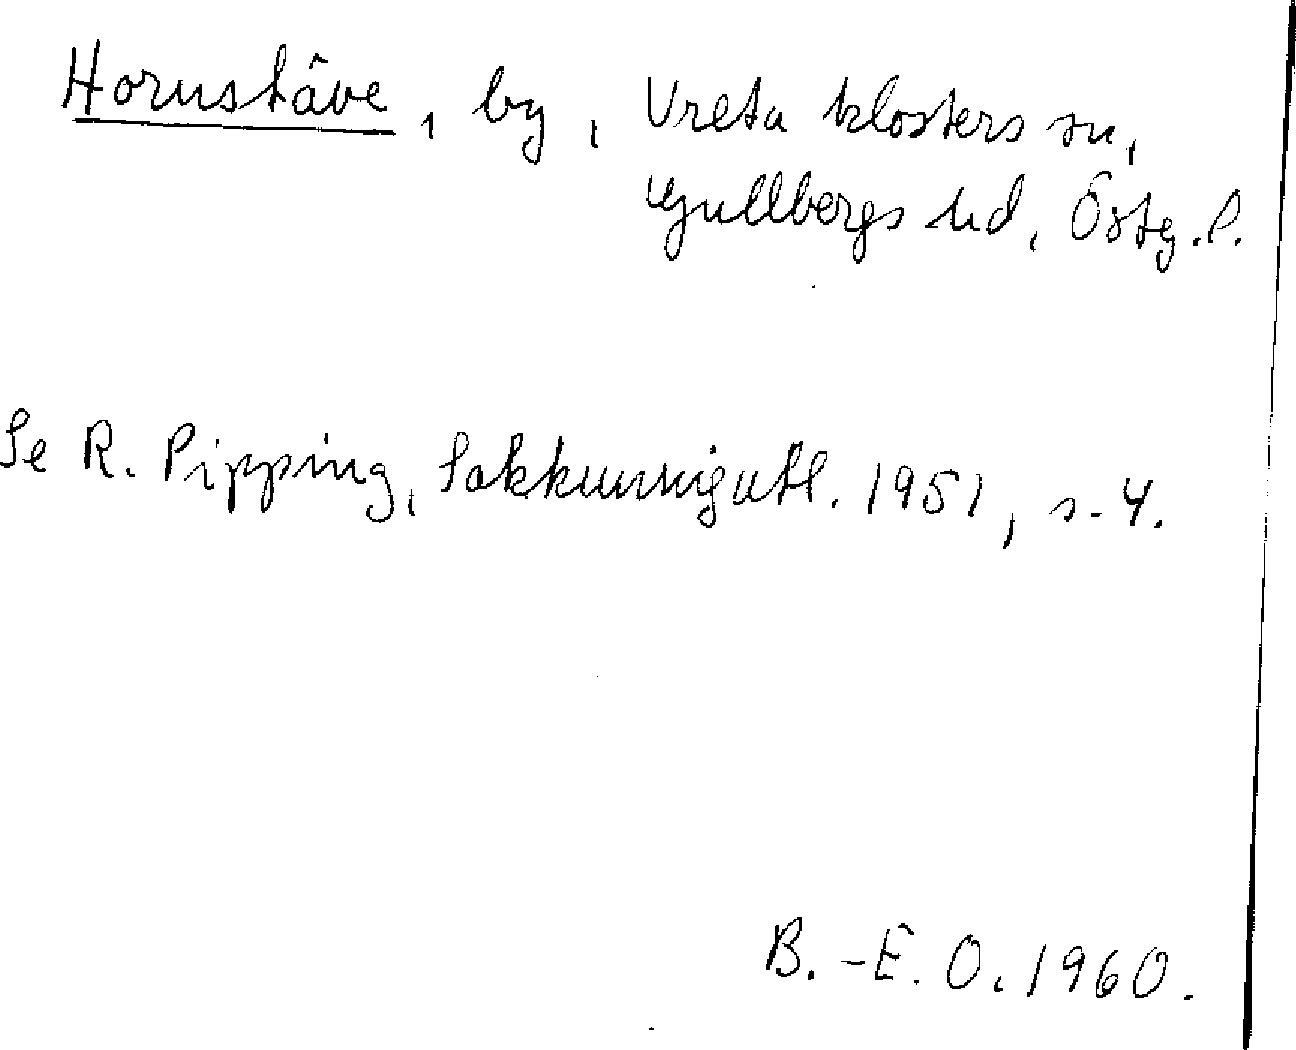 Hornstäve, by, Vreta klosters sn,
Gullbergs hd, Östg.l.
Se R. Pipping, Sakkunnigutl. 1951, s. 4.
B.-E. O. 1960.